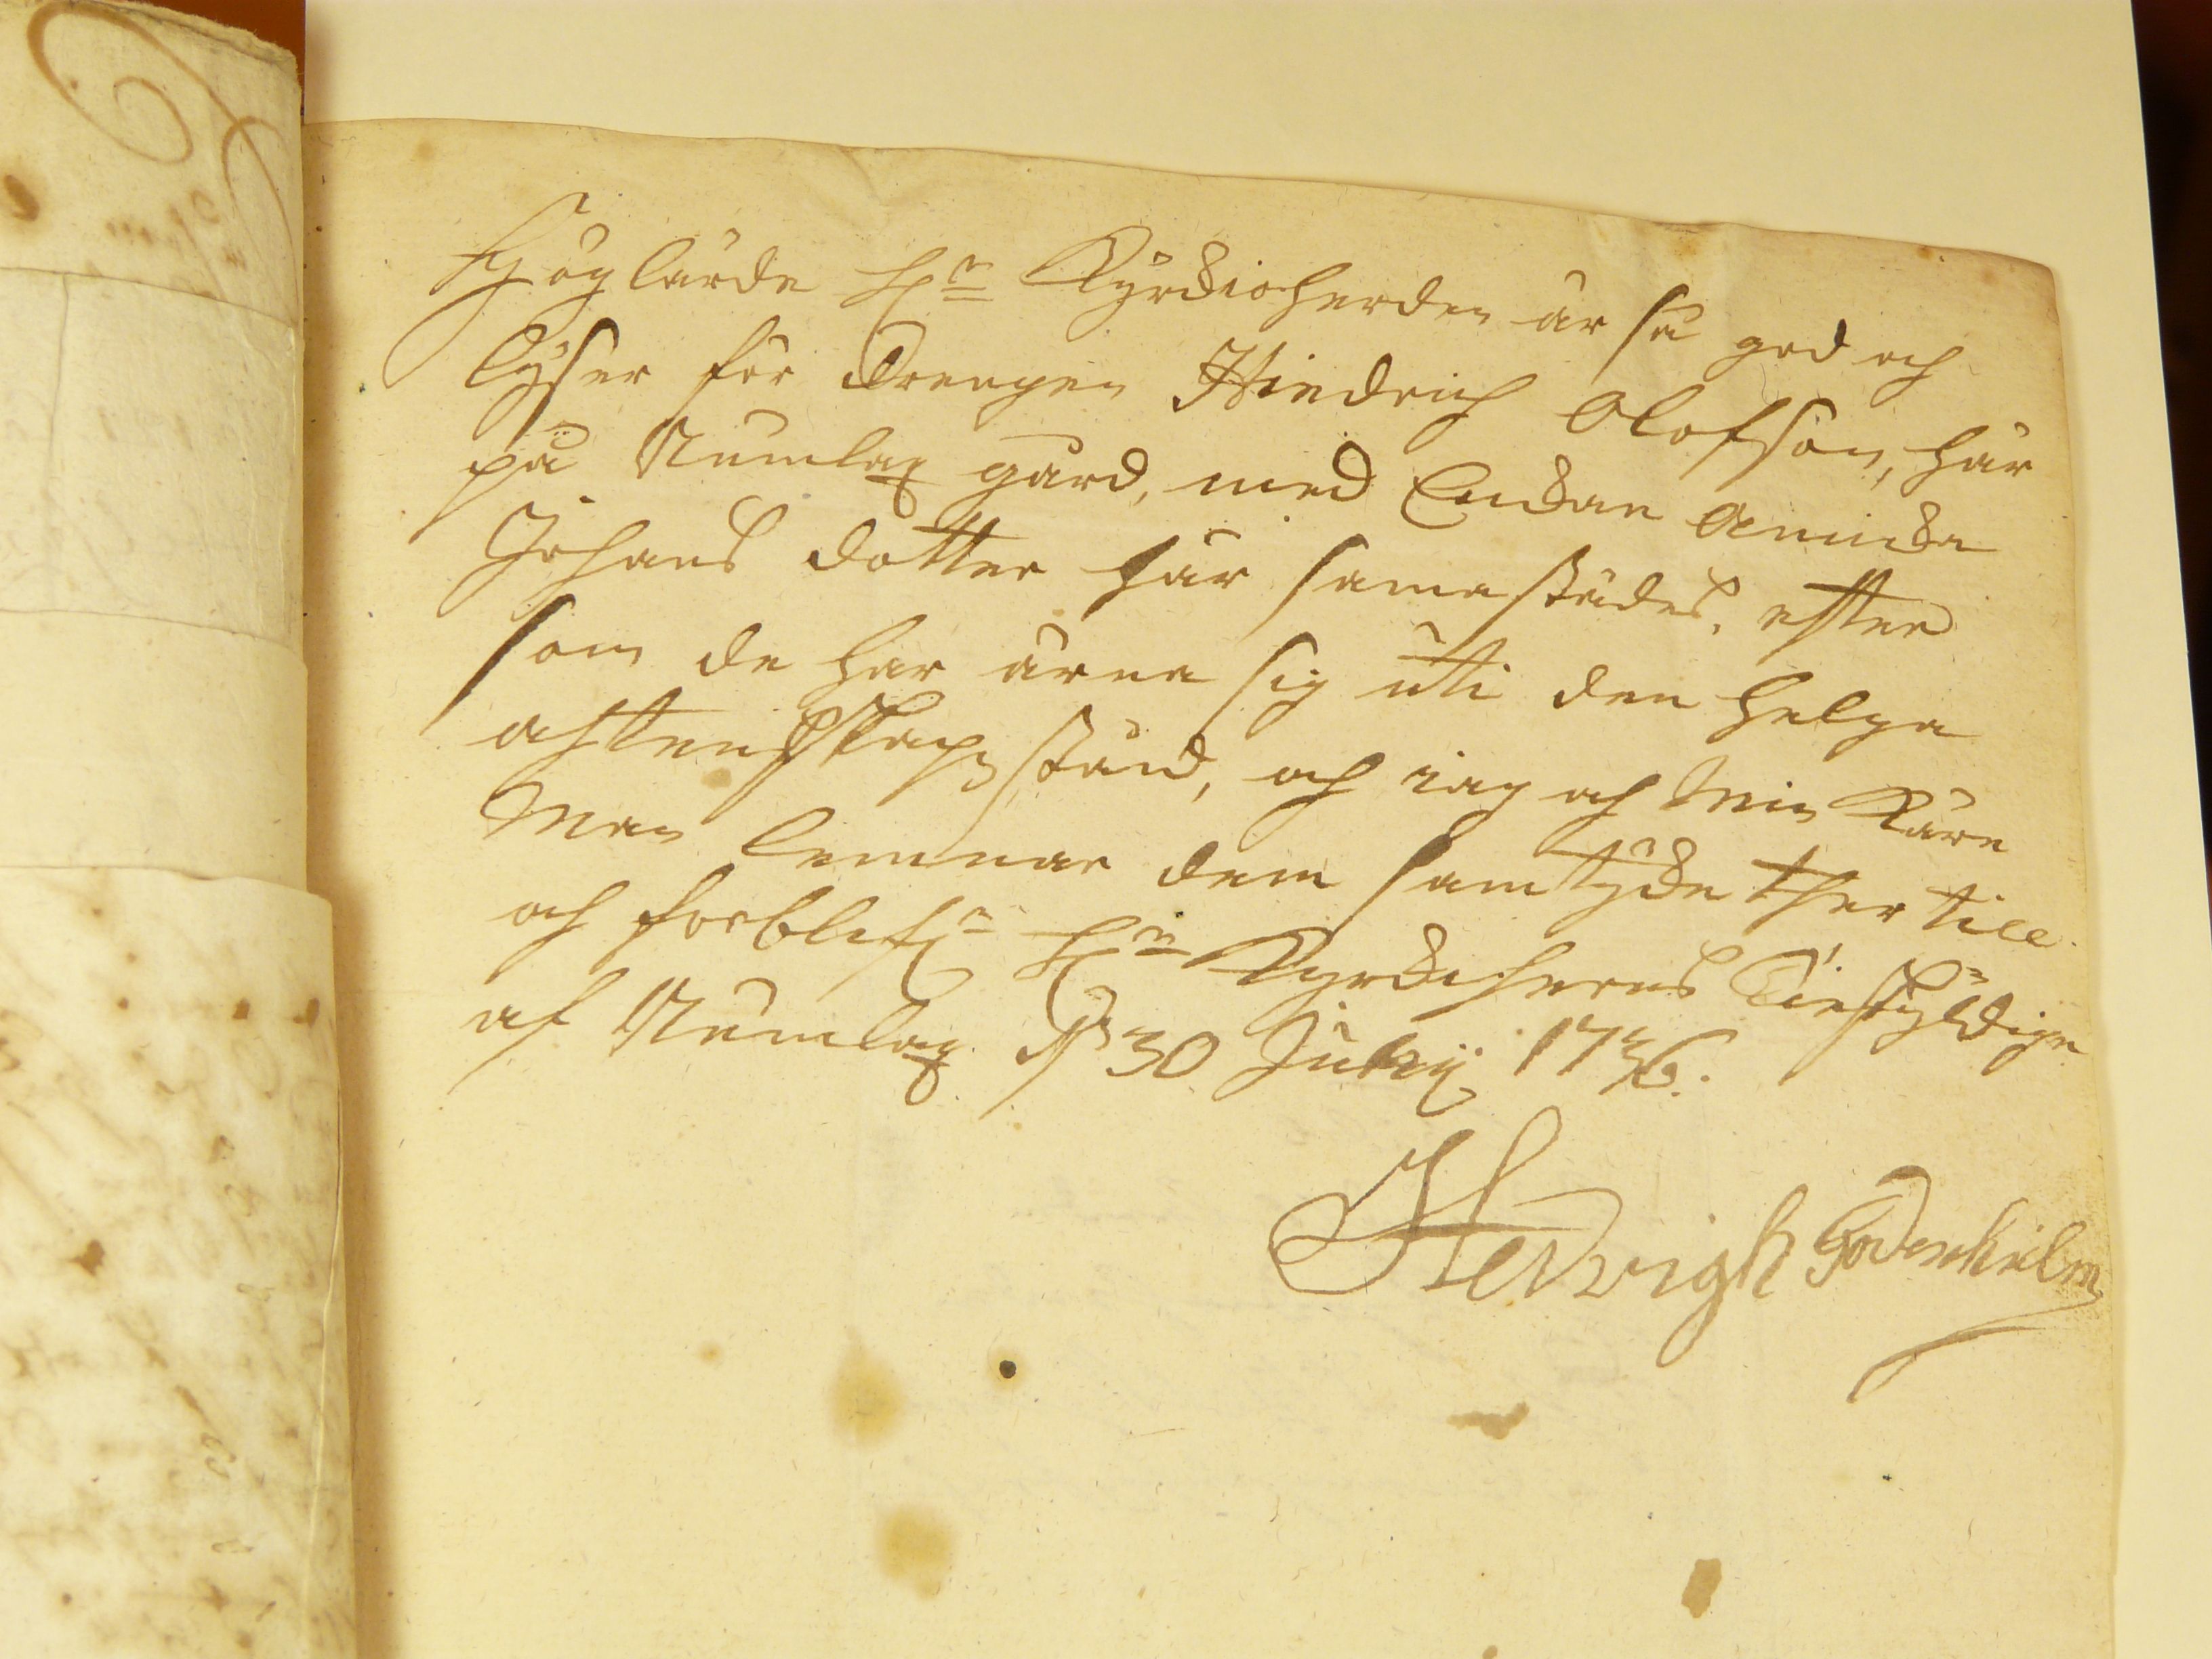 Höglärde H:r Kyrckioherden är så god och
lyser för Drengen Hindrich Olofson, här
på Numlax gård, med Enckan Annicka
Johans dotter här samastädes, efter
som de har ärna sig uti den helga
ächtenskaps stånd, och iag och Min Kära
Man lemnar dem samtycke ther till
och forblifr H:r Kyrckiherns Tienstskyldiga
af Numlax d 30 Julij 1736.
Hedvigh Gödenhielm